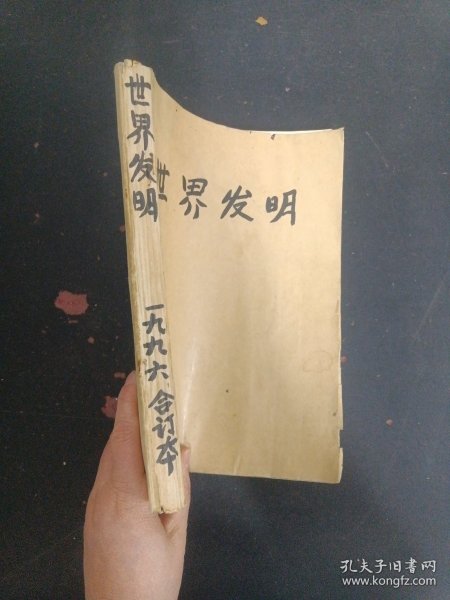 世界发明
一九九六 合订本
世界发明
孔夫子旧书网
www.kongfz.com